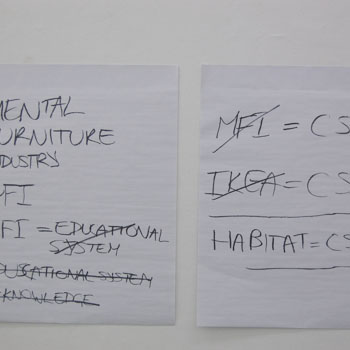 MENTAL
FURNITURE
INDUSTRY
MFI
MFI = EDUCATIONAL
SYSTEM
EDUCATIONAL SYSTEM
KNOWLEDGE
MFI = CS
IKEA = CS
HABITAT = CS